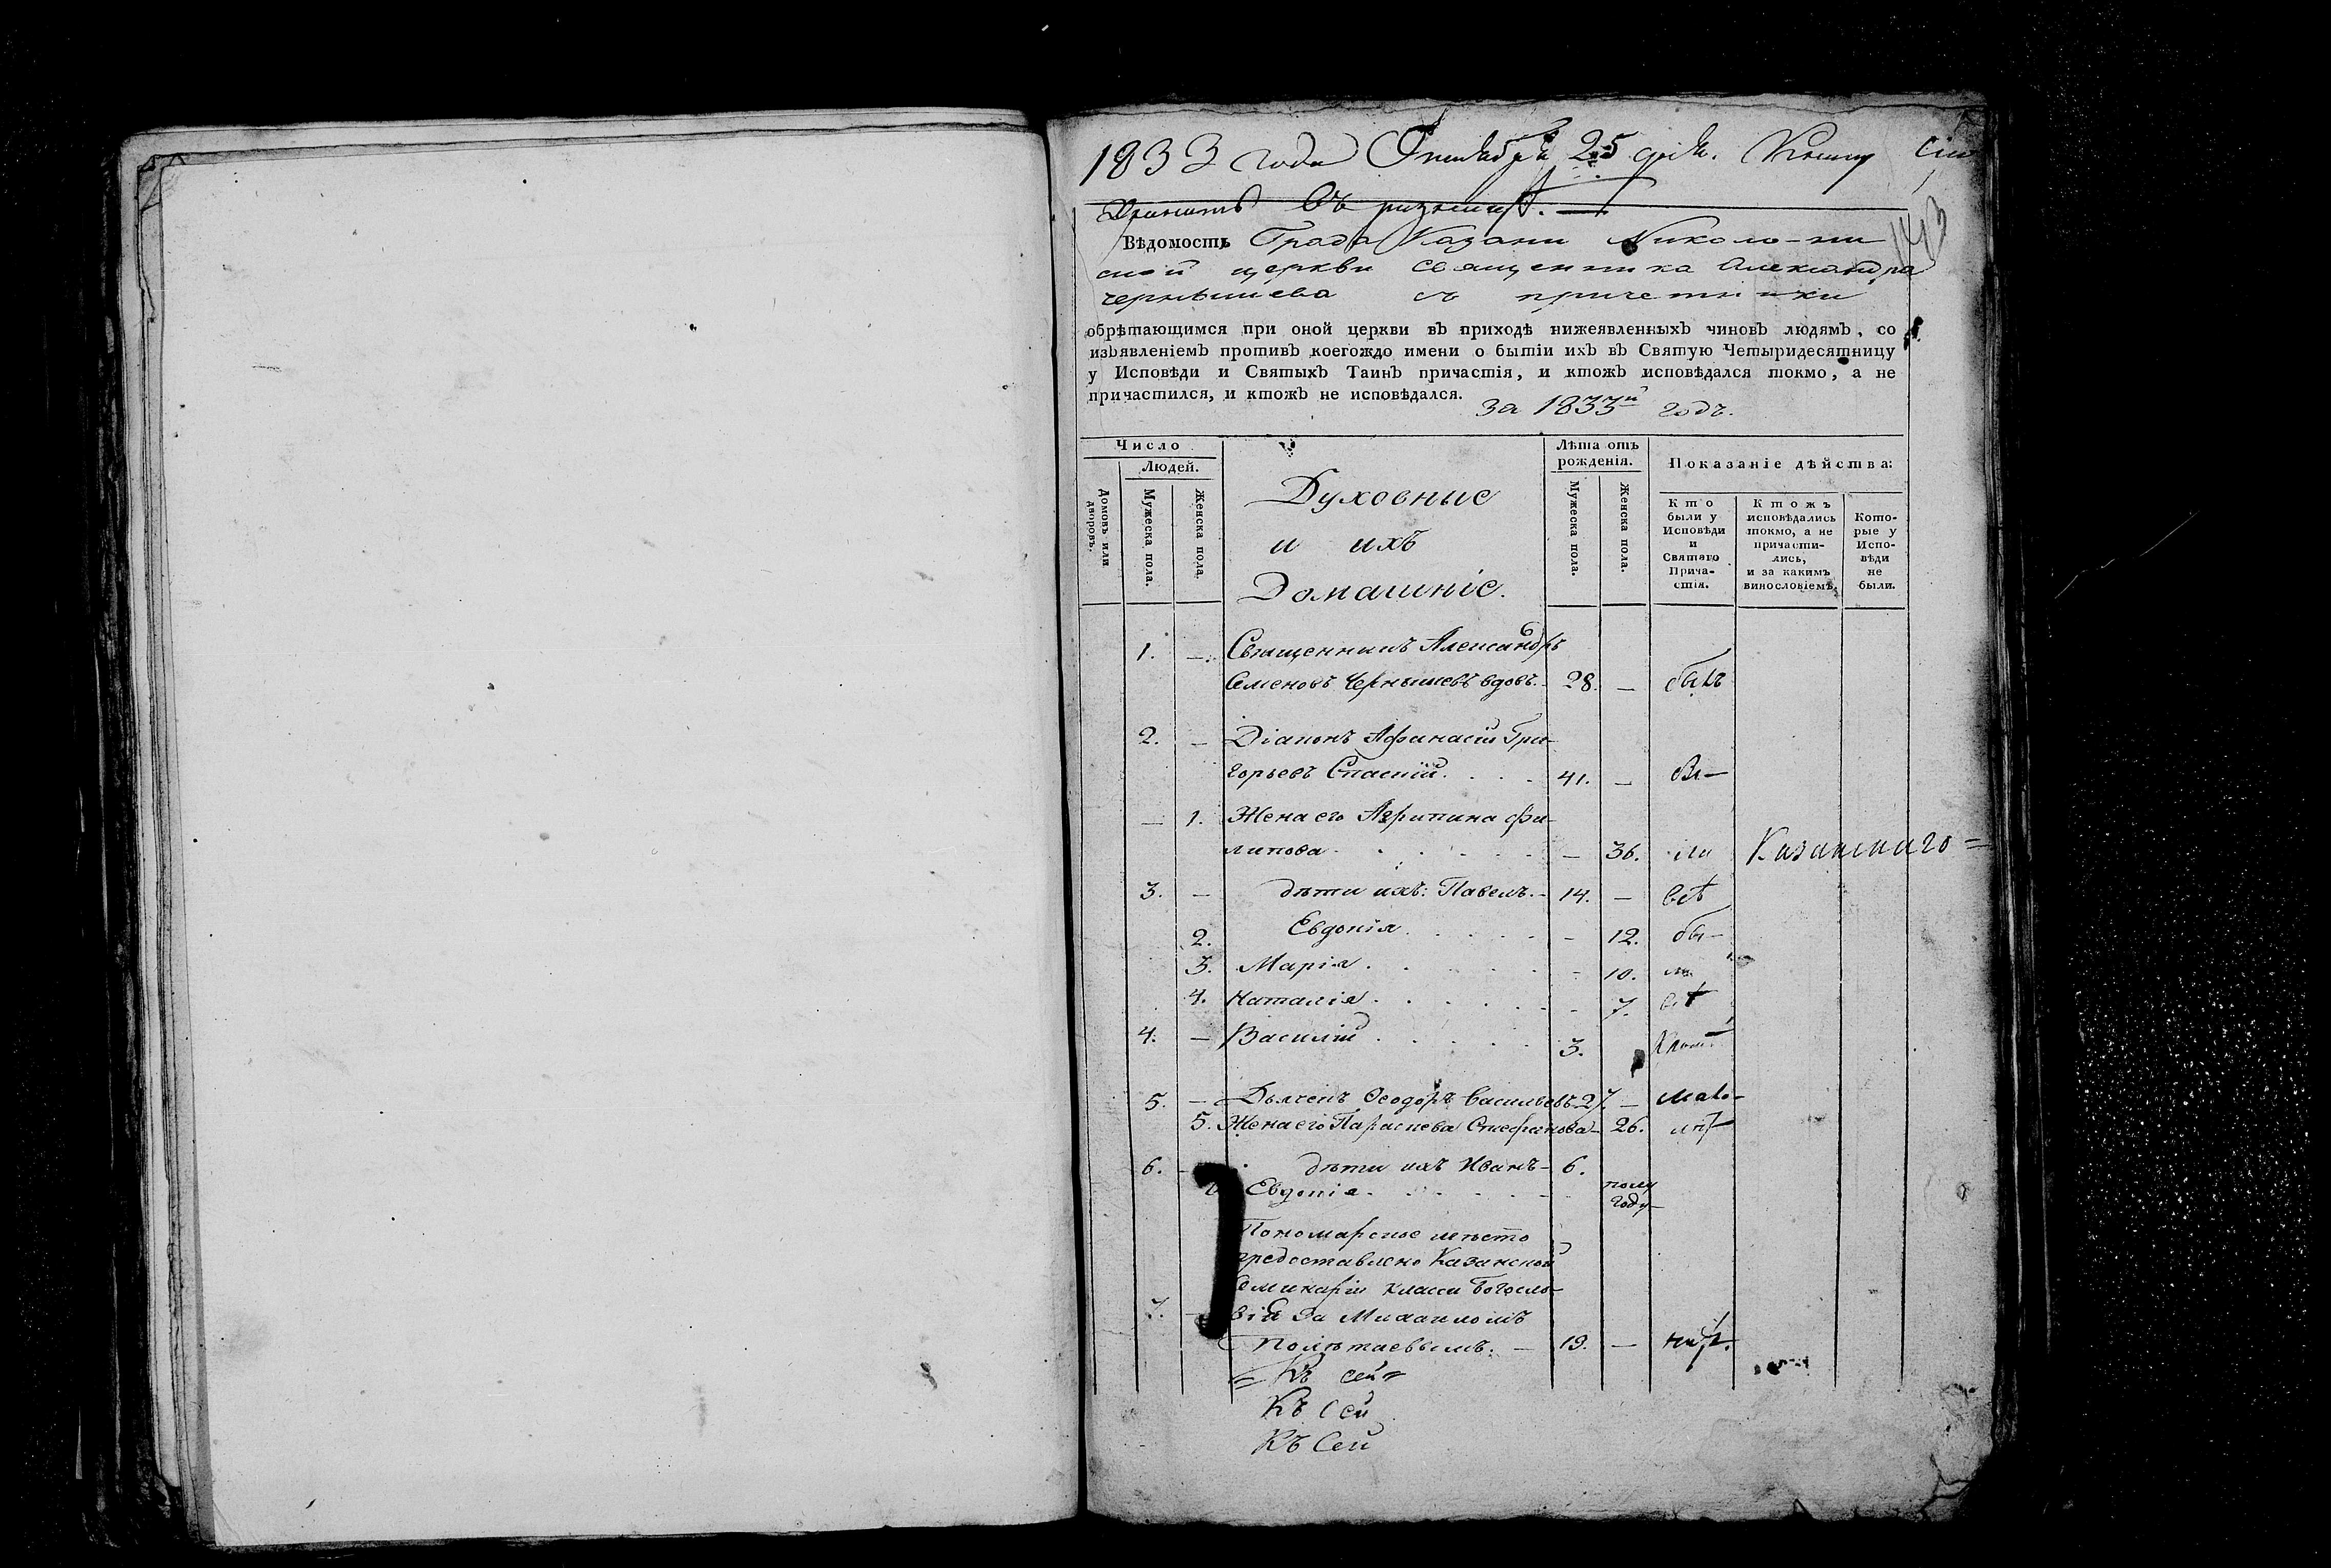 1833 года Октября 25 дня. Книгу сію
Хранить Въ ризницѣ.
143
Вѣдомость Града Казани Николо-
ской церкви священника Александра
Чернышева съ причетники
обрѣтающимся при оной церкви въ приходѣ нижеявленныхъ чиновъ людямъ, со
изъявленіемъ противъ коегождо имени о бытіи ихъ въ Святую Четыридесятницу
у Исповѣди и Святыхъ Таинъ причастія, и ктожъ исповѣдался токмо, а не
причастился, и ктожъ не исповѣдался.
За 1833й годъ.
Число
Людей.
Домовъ или дворовъ.
Мужеска пола.
Женска пола.
Духовные
и ихъ
Домашніе.
Лѣта отъ рожденія.
Мужеска пола.
Женска пола.
Показаніе дѣйства:
Кто были у Исповѣди и Святаго Прича-стія.
Ктожъ исповѣдались токмо, а не причасти-лись, и за какимъ винословіемъ.
Кото-рые у Испо-вѣди не были.
1. — Священникъ Александръ
Семеновъ Чернышевъ вдовъ. 28. — былъ
2. — Діаконъ Афанасій Гри-
горьевъ Спаскій. 41. — Бы—
— 1. Жена его Агрипина Фи-
липова — 36. ли Казанскаго =
3. — дѣти ихъ: Павелъ. 14. — всѣ
2. Евдокія — 12. бы—
3. Марія — 10. ли
4. Наталія — 7. всѣ
4. — Василій 3. Кромѣ
5. — Дьячекъ Ѳеодоръ Васильевъ 27. — мало-
5. Жена его Параскева Стефанова — 26. лѣт
6. — дѣти ихъ Иванъ — 6.
Евдокія полу году
Пономарское мѣсто
предоставлено Казанской
Семинаріи класса Богосло-
7. — вія За Михаиломъ
Полѣтаевымъ. — 19. —
= Къ сей =
Къ Сей
Къ Сей